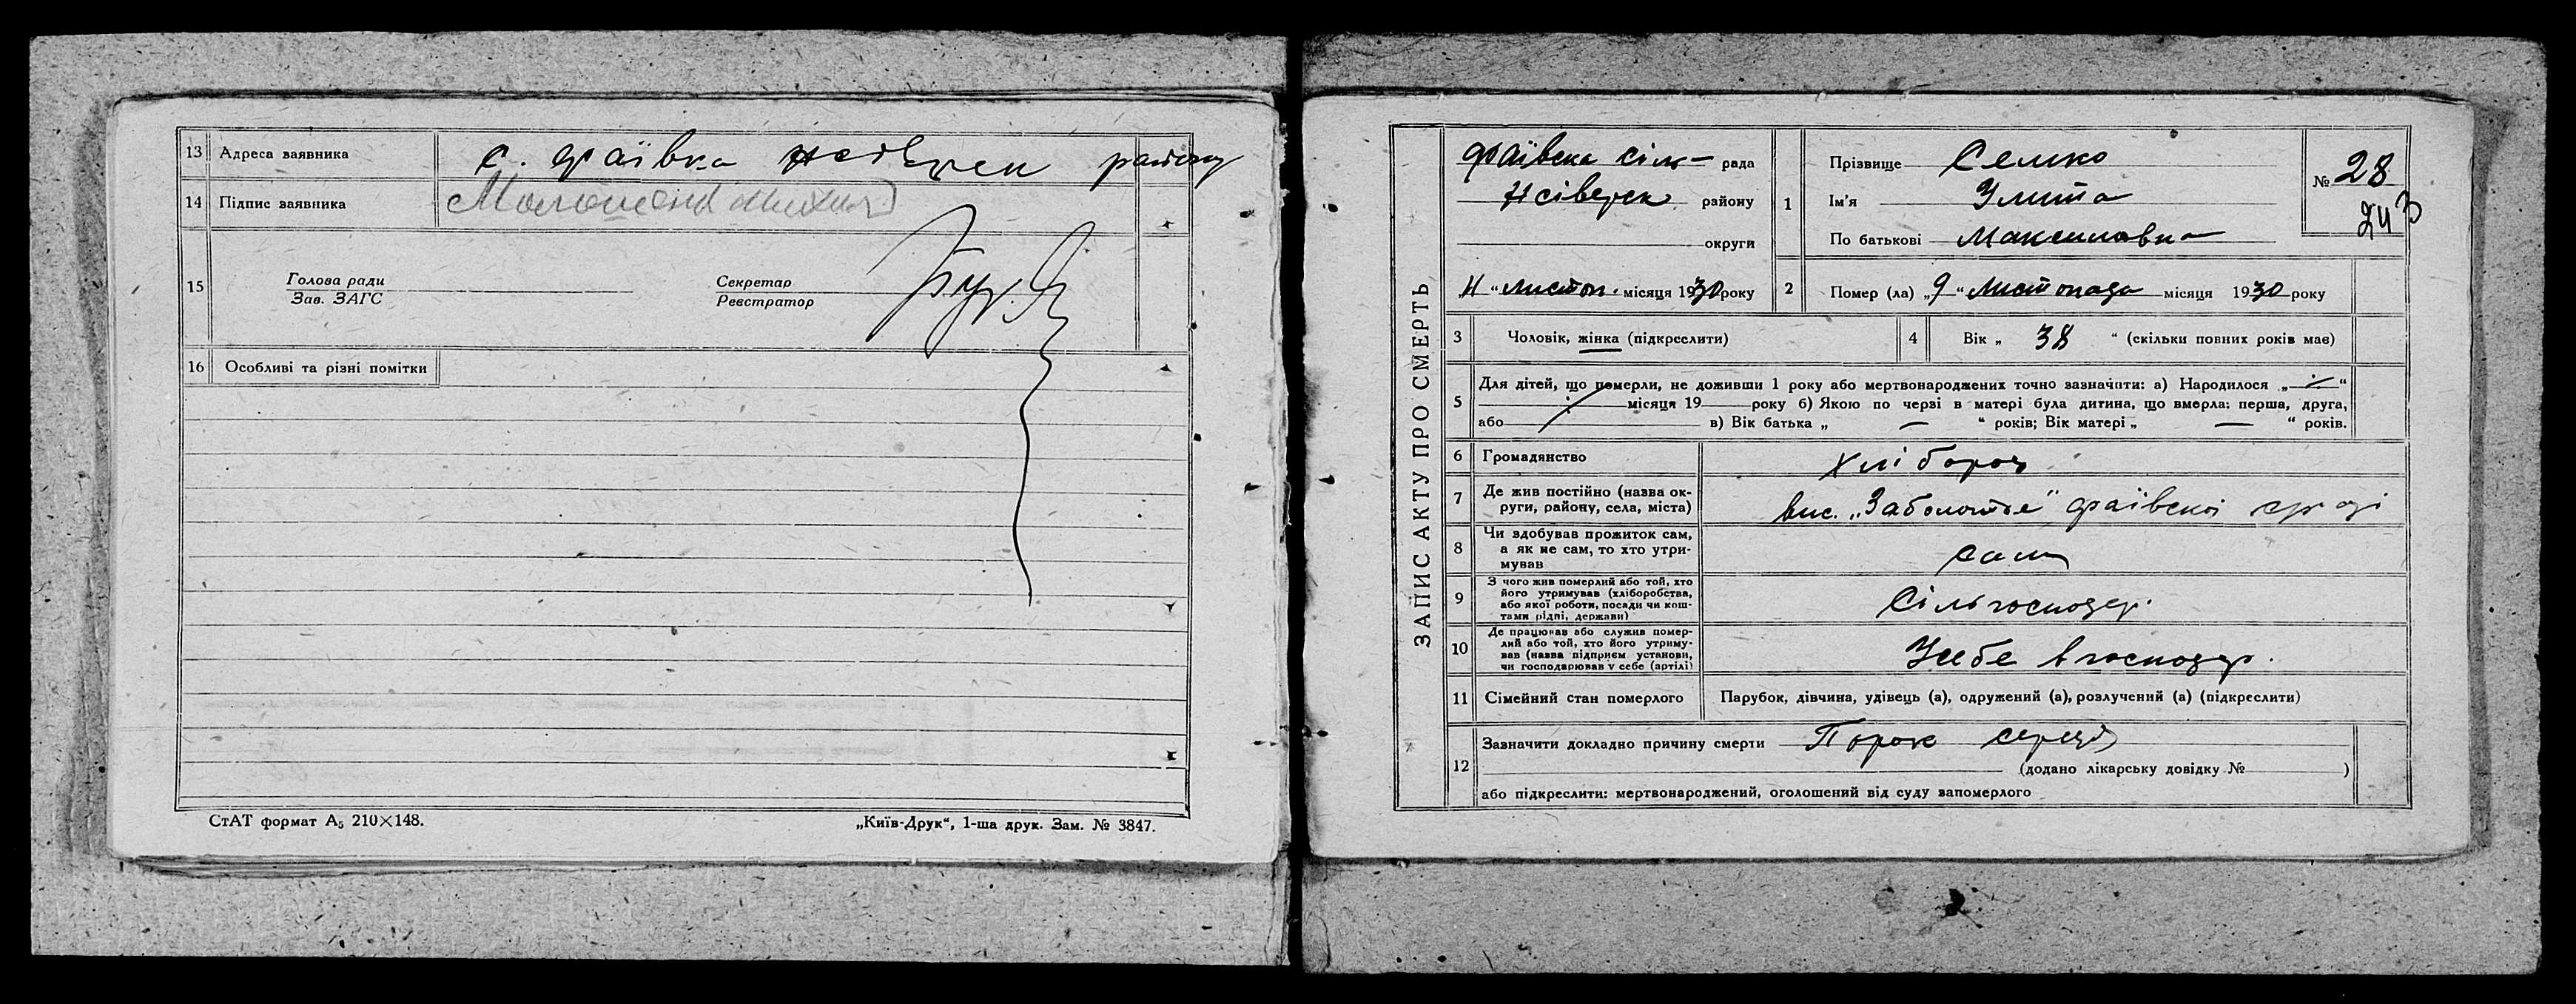 13 Адреса заявника с. Фаївка Нсіверськ району
14 Підпис заявника
15 Голова ради
Зав. ЗАГС
Секретар
Реєстратор
16 Особливі та різні помітки
СтАТ формат А₅ 210×148.
„Київ-Друк“, 1-ша друк. Зам. № 3847.
ЗАПИС АКТУ ПРО СМЕРТЬ
Фаївська сіль- рада
Нсіверськ району
округи
„11“ листоп. місяця 1930 року
1 Прізвище Семко
Ім'я Улита
По батькові Максимовна
№ 28
243
2 Помер (ла) „9“ Листопада місяця 1930 року
3 Чоловік, жінка (підкреслити)
4 Вік „ 38 “ (скільки повних років має)
5 Для дітей, що померли, не доживши 1 року або мертвонароджених точно зазначити: а) Народилося „ “
місяця 19 року б) Якою по черзі в матері була дитина, що вмерла: перша, друга,
або в) Вік батька „ — “ років; Вік матері „ — “ років.
6 Громадянство Хлібороб
7 Де жив постійно (назва ок-
руги, району, села, міста) вис. „Заболоття“ Фаївської
8 Чи здобував прожиток сам,
а як не сам, то хто утри-
мував сам
9 З чого жив померлий або той, хто
його утримував (хліборобства,
або якої роботи, посади чи кош-
тами рідні, держави) Сільгосподар.
10 Де працював або служив помер-
лий або той, хто його утриму-
вав (назва підприєм установи,
чи господарював у себе (артілі) У себе в господар.
11 Сімейний стан померлого Парубок, дівчина, удівець (а), одружений (а), розлучений (а) (підкреслити)
12 Зазначити докладно причину смерти Порок серця
(додано лікарську довідку № )
або підкреслити: мертвонароджений, оголошений від суду запомерлого